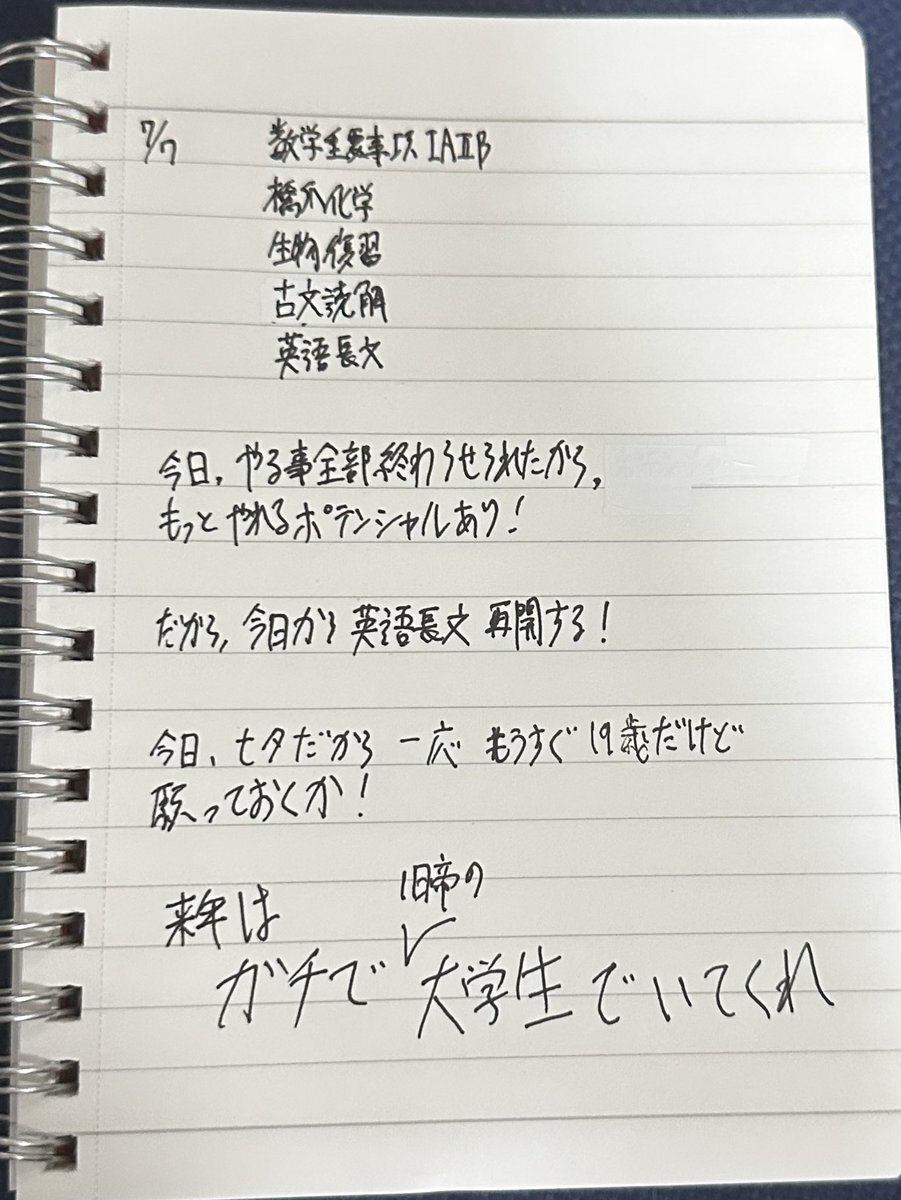 7/7 数学重要事項 IAIIB
橋爪化学
生物復習
古文読解
英語長文
今日、やる事全部終わらせられたから、
もっとやれるポテンシャルあり!
だから、今日から英語長文再開する!
今日、七夕だから一応もうすぐ19歳だけど
願っておくか!
来年は
ガチで旧帝の大学生でいてくれ